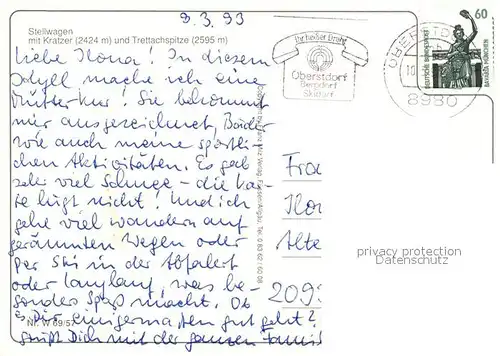 8.3.93
Stellwagen
mit Kratzer (2424 m) und Trettachspitze (2595 m)
Liebe Ilona! In diesem
Idyll mache ich eine
Mutterkur! Sie bekommt
mir ausgezeichnet, Bäder
wie auch meine sportli-
chen Aktivitäten. Es gab
sehr viel Schnee - die Kar-
te lügt nicht! Und ich
gehe viel wandern auf
geräumten Wegen oder
per Ski in der Abfahrt
oder Langlauf, was be-
sonders Spaß macht. Ob
es Dir einigermaßen gut geht?
grüßt Dich mit der ganzen Famil
Nr. W 69/57
Verlag, Füssen/Allgäu, Tel. 0 83 62 / 60 08
Ihr heißer Draht
Oberstdorf
Bergdorf
Skidorf
OBERSTDORF
8980
60
DEUTSCHE BUNDESPOST
BAVARIA MÜNCHEN
Frau
Ilon
Alte
209
privacy protection
Datenschutz